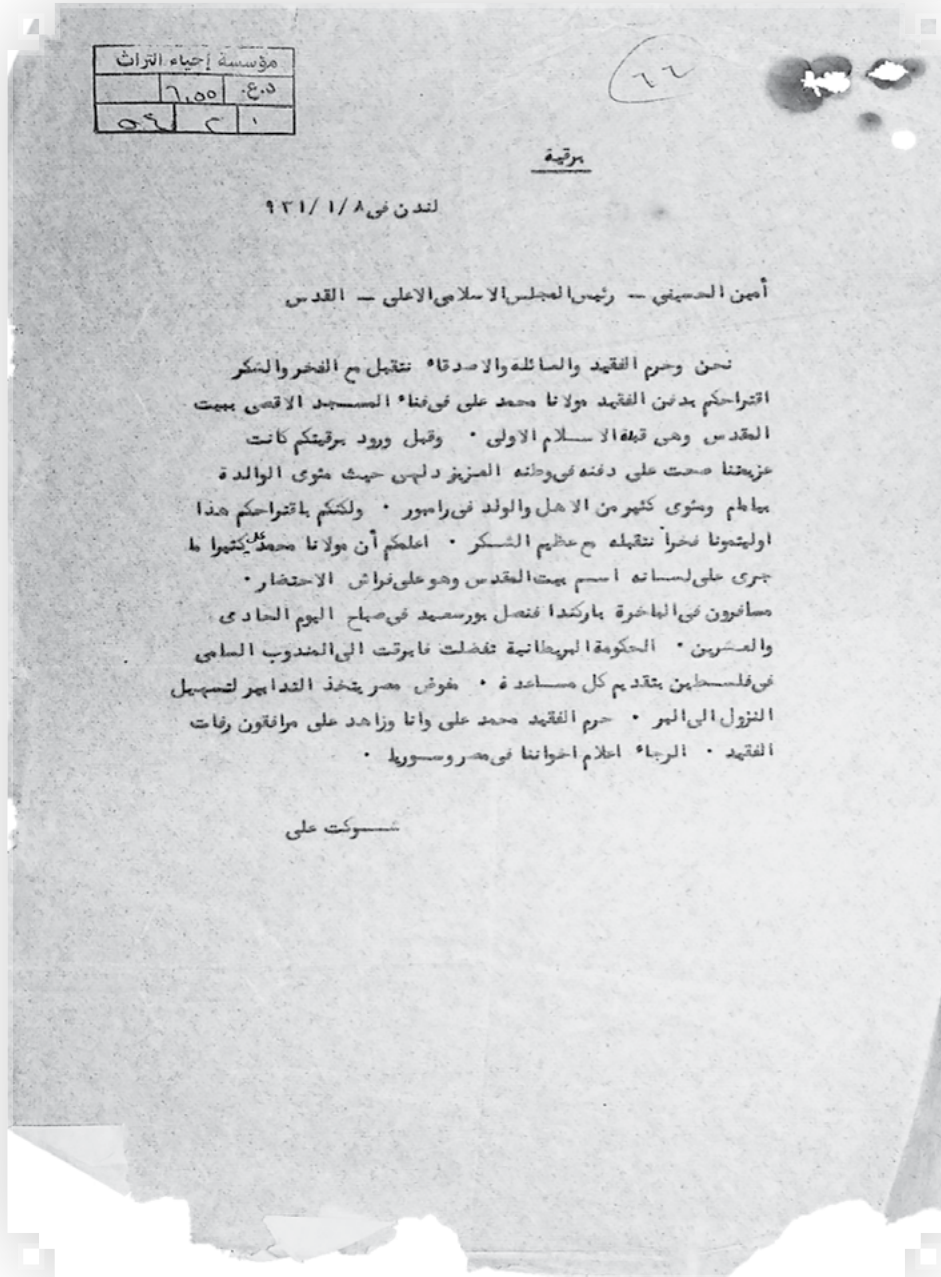 مؤسسة إحياء التراث
د.ع. ٦,٥٥
١ ٢ ٥٤
٦٦
برقية
لندن في ٨/ ١/ ٩٣١
أمين الحسيني — رئيس المجلس الاسلامى الاعلى — القدس
نحن وحرم الفقيد والعائلة والاصدقاء نتقبل مع الفخر والشكر
اقتراحكم بدفن الفقيد مولانا محمد على فى فناء المسجد الاقصى ببيت
المقدس وهى قبلة الاسلام الاولى ٠ وقبل ورود برقيتكم كانت
عزيمتنا صحت على دفنه فى وطنه العزيز دلهى حيث مثوى الوالدة
ومثوى كثير من الاهل والولد فى رامبور ٠ ولكنكم باقتراحكم هذا
اوليتمونا فخراً نتقبله مع عظيم الشكر ٠ اعلمكم أن مولانا محمد على كثيرا ما
جرى على لسانه اسم بيت المقدس وهو على فراش الاحتضار ٠
مسافرون فى الباخرة ناركندا فنصل بورسعيد فى صباح اليوم الحادى
والعشرين ٠ الحكومة البريطانية تفضلت فابرقت الى المندوب السامى
فى فلسطين بتقديم كل مساعدة ٠ مفوض مصر يتخذ التدابير لتسهيل
النزول الى البر ٠ حرم الفقيد محمد على وانا وزاهد على مرافقون رفات
الفقيد ٠ الرجاء اعلام اخواننا فى مصر وسوريا ٠
شوكت على